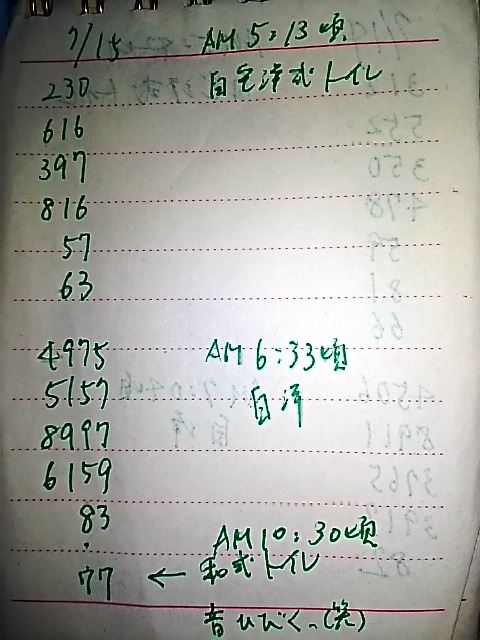 7/15 AM 5:13頃
230 自宅洋式トイレ
616
397
816
57
63
4975 AM 6:33頃
5157 自洋
8997
6159
83
AM 10:30頃
77 ← 和式トイレ
音ひびくっ(笑)